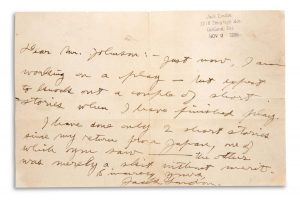 Jack London
Oakland, Cal.
NOV 9
Dear Mr. Johnson:– Just now, I am
working on a play – but expect
to knock out a couple of short-
stories when I have finished play.
I have done only 2 short stories
since my return from Japan, one of
which you saw — the other
was merely a skit without merit.
Sincerely yours,
Jack London.